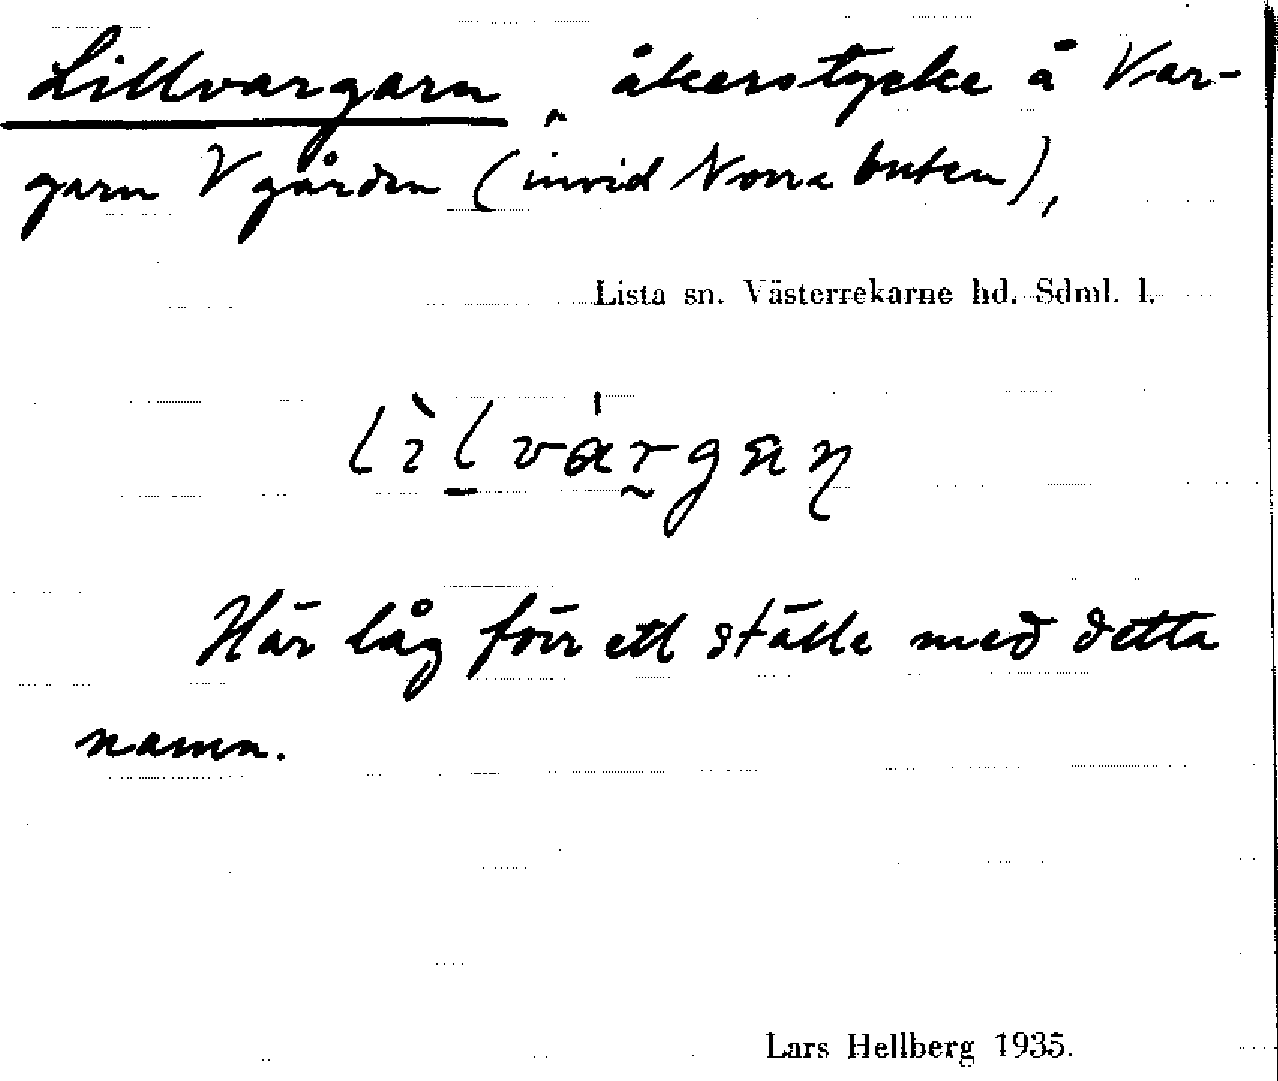 Lillvargarn, åkerstycke å Var-
garn V gården (invid Norra buten),
Lista sn. Västerrekarne hd. Sdml. l.
Här låg förr ett ställe med detta
namn.
Lars Hellberg 1935.